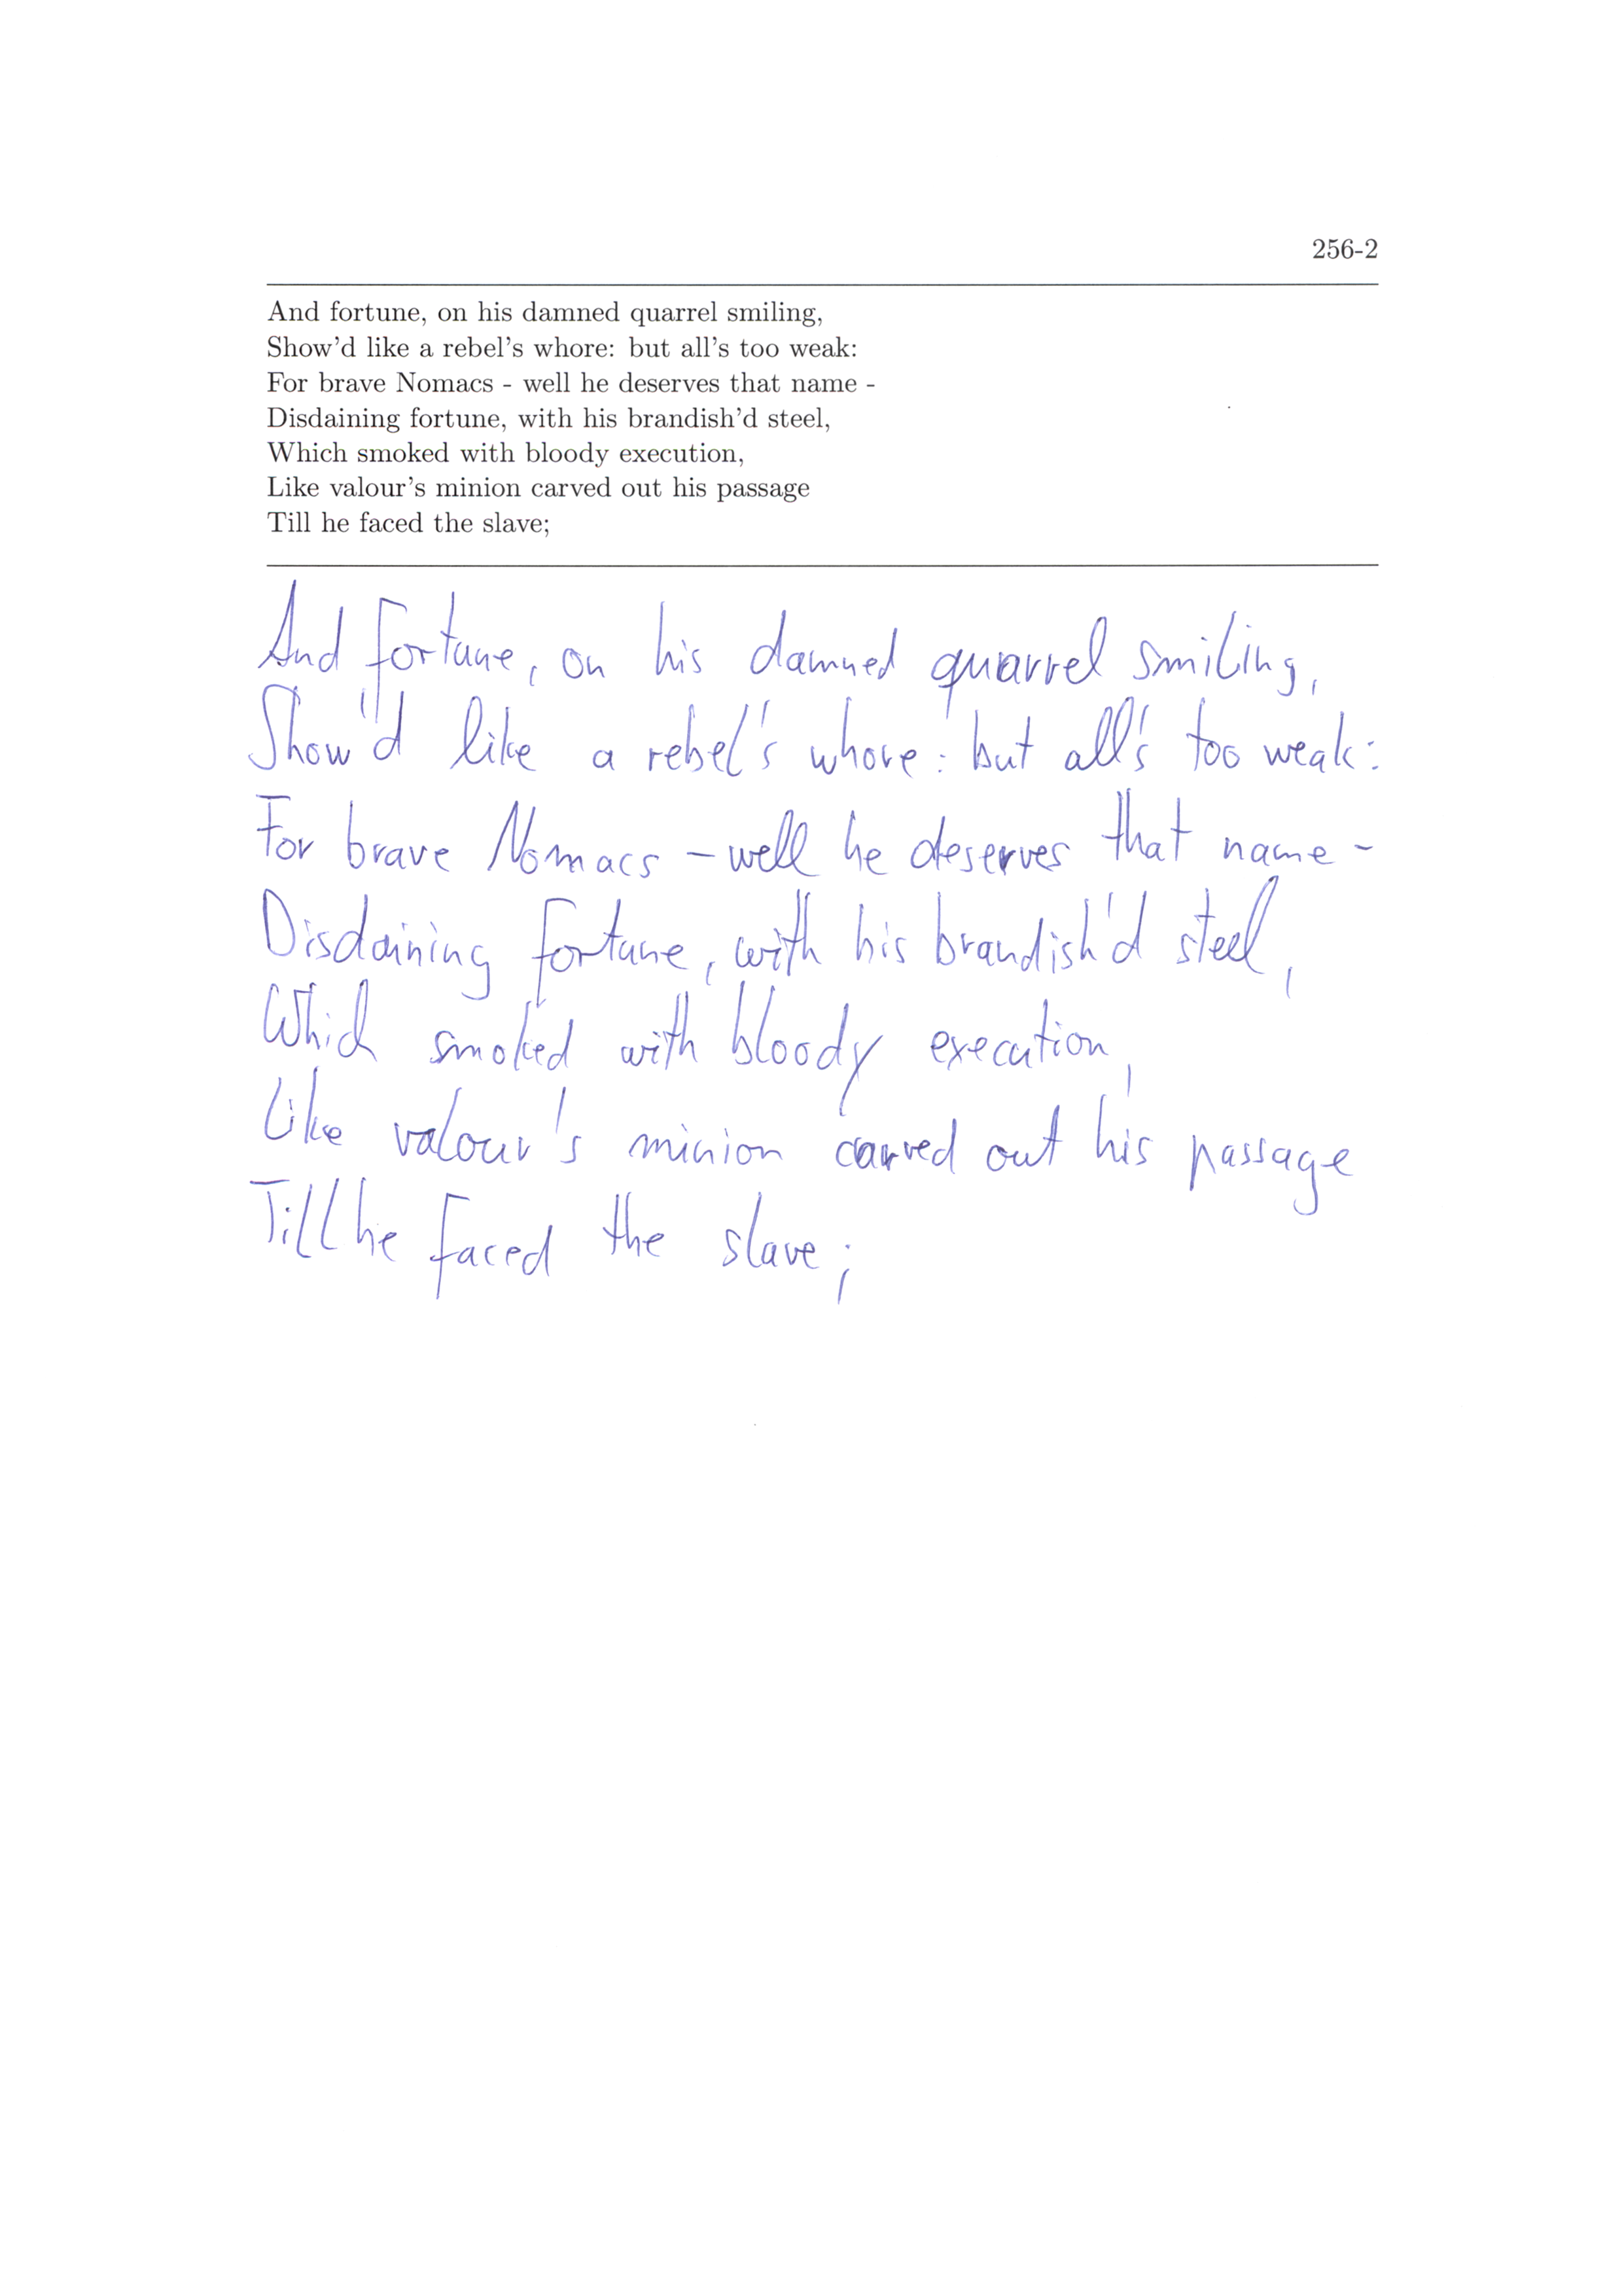 256-2
And fortune, on his damned quarrel smiling,
Show'd like a rebel's whore: but all's too weak:
For brave Nomacs - well he deserves that name -
Disdaining fortune, with his brandish'd steel,
Which smoked with bloody execution,
Like valour's minion carved out his passage
Till he faced the slave;
And fortune, on his damned quarrel smiling,
Show'd like a rebel's whore: but all's too weak:
For brave Nomacs - well he deserves that name -
Disdaining fortune, with his brandish'd steel,
Which smoked with bloody execution,
Like valour's minion carved out his passage
Till he faced the slave;